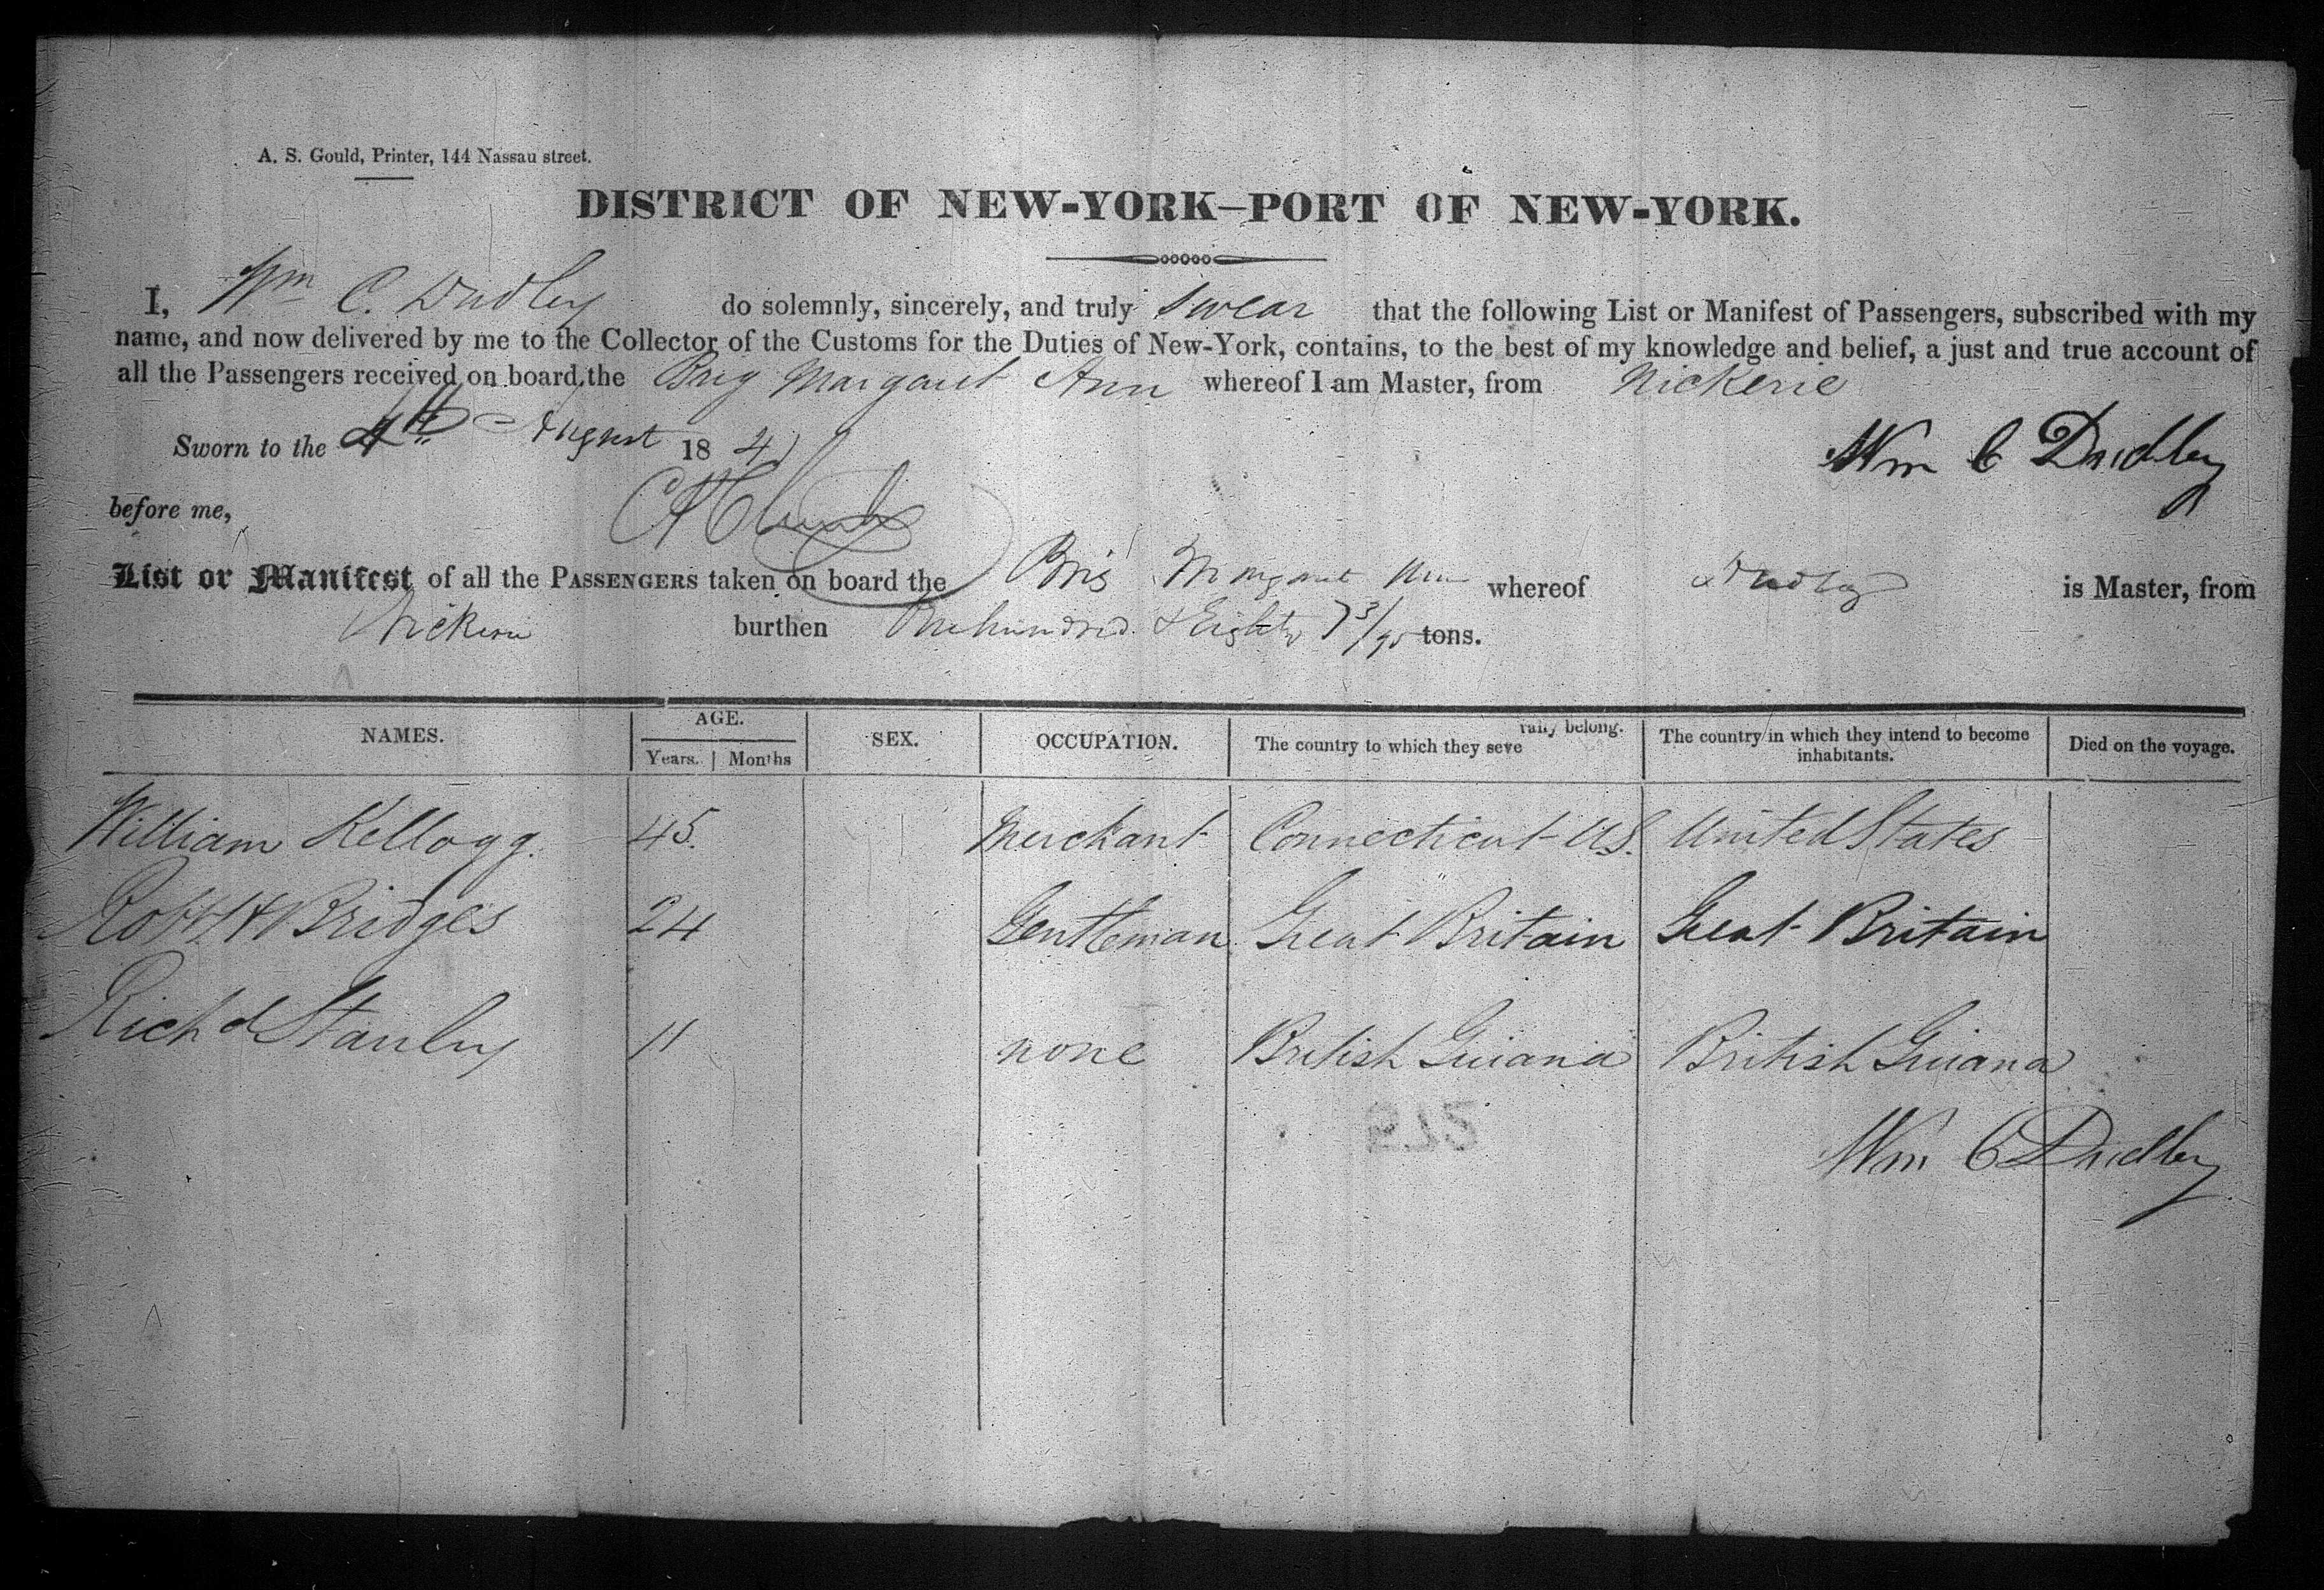 A. S. Gould, Printer, 144 Nassau street.
DISTRICT OF NEW-YORK—PORT OF NEW-YORK.
I, Wm C. Dudley do solemnly, sincerely, and truly swear that the following List or Manifest of Passengers, subscribed with my
name, and now delivered by me to the Collector of the Customs for the Duties of New-York, contains, to the best of my knowledge and belief, a just and true account of
all the Passengers received on board, the Brig Margaret Ann whereof I am Master, from Nickerie
Sworn to the 4th August 1841
Wm C Dudley
before me,
List or Manifest of all the PASSENGERS taken on board the Brig Margaret Ann whereof Dudley is Master, from
Nickerie burthen One hundred & Eighty 73/95 tons.
NAMES. AGE. SEX. OCCUPATION. The country to which they seve rally belong. The country in which they intend to become inhabitants. Died on the voyage.
Years. Months
William Kellogg. 45. Merchant Connecticut U.S. United States
Robt H Bridges 24 Gentleman Great Britain Great Britain
Richd Stanley 11 none British Guiana British Guiana
Wm C Dudley